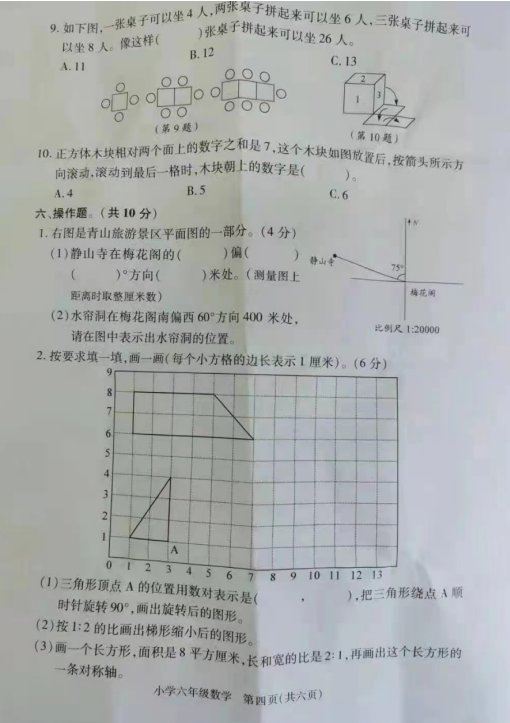 9. 如下图,一张桌子可以坐4人,两张桌子拼起来可以坐6人,三张桌子拼起来可
以坐8人。像这样(　　)张桌子拼起来可以坐26人。
A. 11　B. 12　C. 13
2
1　3
(第9题)　(第10题)
10. 正方体木块相对两个面上的数字之和是7,这个木块如图放置后,按箭头所示方
向滚动,滚动到最后一格时,木块朝上的数字是(　　)。
A. 4　B. 5　C. 6
六、操作题。(共10分)
1. 右图是青山旅游景区平面图的一部分。(4分)
(1)静山寺在梅花阁的(　　)偏(　　)
(　　)°方向(　　)米处。(测量图上
距离时取整厘米数)
(2)水帘洞在梅花阁南偏西60°方向400米处,
请在图中表示出水帘洞的位置。
N
静山寺
75°
梅花阁
比例尺 1:20000
2. 按要求填一填,画一画(每个小方格的边长表示1厘米)。(6分)
9
8
7
6
5
4
3
2
1
A
0 1 2 3 4 5 6 7 8 9 10 11 12 13
(1)三角形顶点A的位置用数对表示是(　　,　　),把三角形绕点A顺
时针旋转90°,画出旋转后的图形。
(2)按1:2的比画出梯形缩小后的图形。
(3)画一个长方形,面积是8平方厘米,长和宽的比是2:1,再画出这个长方形的
一条对称轴。
小学六年级数学　第四页(共六页)